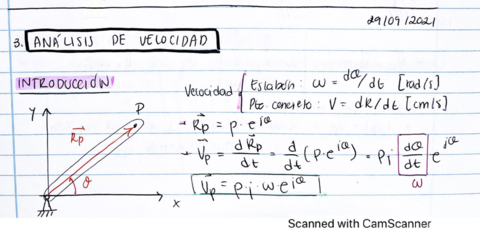 29/09/2021
3. ANÁLISIS DE VELOCIDAD
INTRODUCCIÓN
Velocidad { Eslabón: ω = dθ/dt [rad/s]
Pto concreto: V = dR/dt [cm/s]
y
P
R⃗p
θ
x
- R⃗p = p·e^iθ
- V⃗p = dR⃗p/dt = d/dt (p·e^iθ) = p i dθ/dt e^iθ
ω
V⃗p = p·i·ω·e^iθ
Scanned with CamScanner